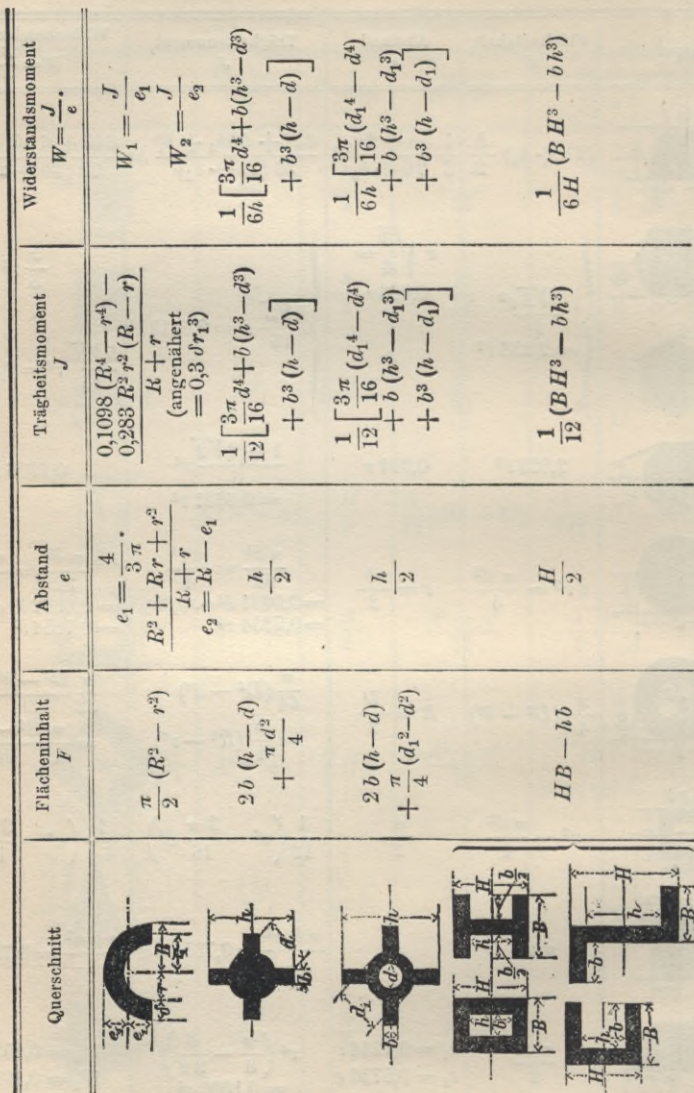 Querschnitt
Flächeninhalt
F
Abstand
e
Trägheitsmoment
J
Widerstandsmoment
W = J/e.
e₁
r
R
d
π/2 (R² − r²)
e₁ = 4/(3 π) ·
(R² + Rr + r²)/(R + r)
e₂ = R − e₁
0,1098 (R⁴ − r⁴) −
0,283 R² r² (R − r)
R + r
(angenähert
= 0,3 δr₁³)
W₁ = J/e₁
W₂ = J/e₂
h
d
b
2 b (h — d)
+ π d²/4
h/2
1/12 [3π/16 d⁴ + b (h³ − d³)
+ b³ (h − d)]
1/6h [3π/16 d⁴ + b (h³ − d³)
+ b³ (h − d)]
d₁
d
h
b
2 b (h − d)
+ π/4 (d₁² − d²)
h/2
1/12 [3π/16 (d₁⁴ − d⁴)
+ b (h³ − d₁³)
+ b³ (h − d₁)]
1/6h [3π/16 (d₁⁴ − d⁴)
+ b (h³ − d₁³)
+ b³ (h − d₁)]
H
h
b
B
H
h
b/2
b/2
B
H
h
b
B
b
h
H
B
HB − hb
H/2
1/12 (BH³ − bh³)
1/6H (BH³ − bh³)